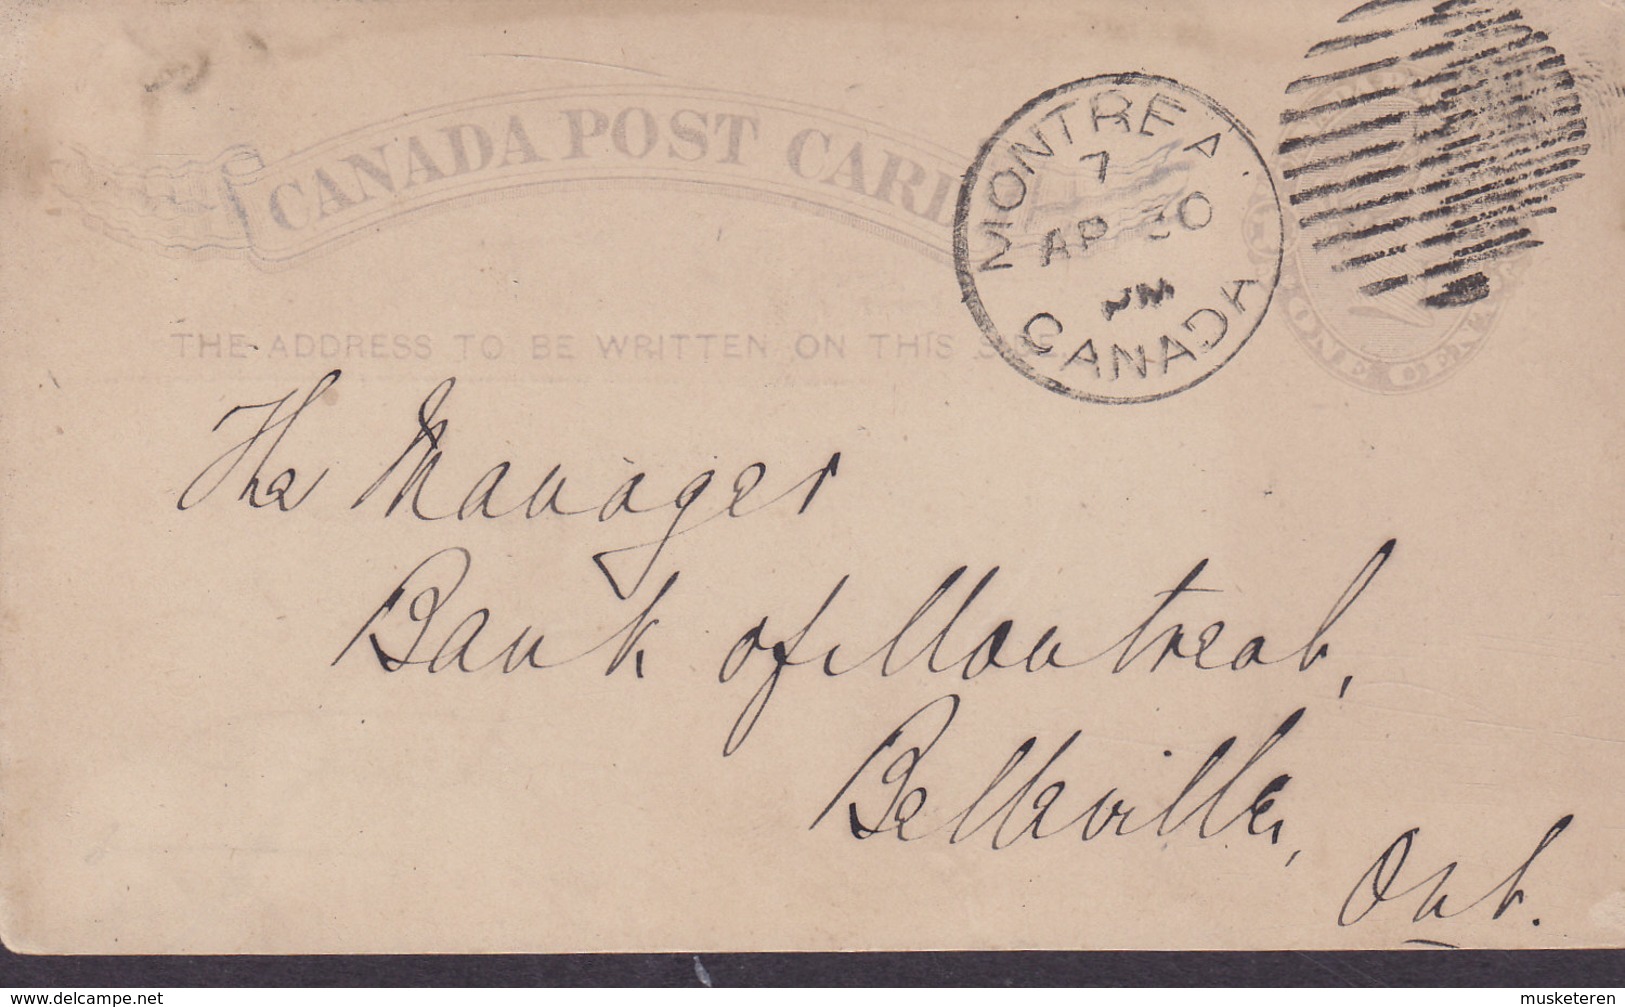 CANADA POST CARD
MONTREA
7
AP 30
CANADA
ONE CENT
THE ADDRESS TO BE WRITTEN ON THIS
The Manager
Bank of Montreal,
Belleville,
Ont.
www.delcampe.net
musketeren